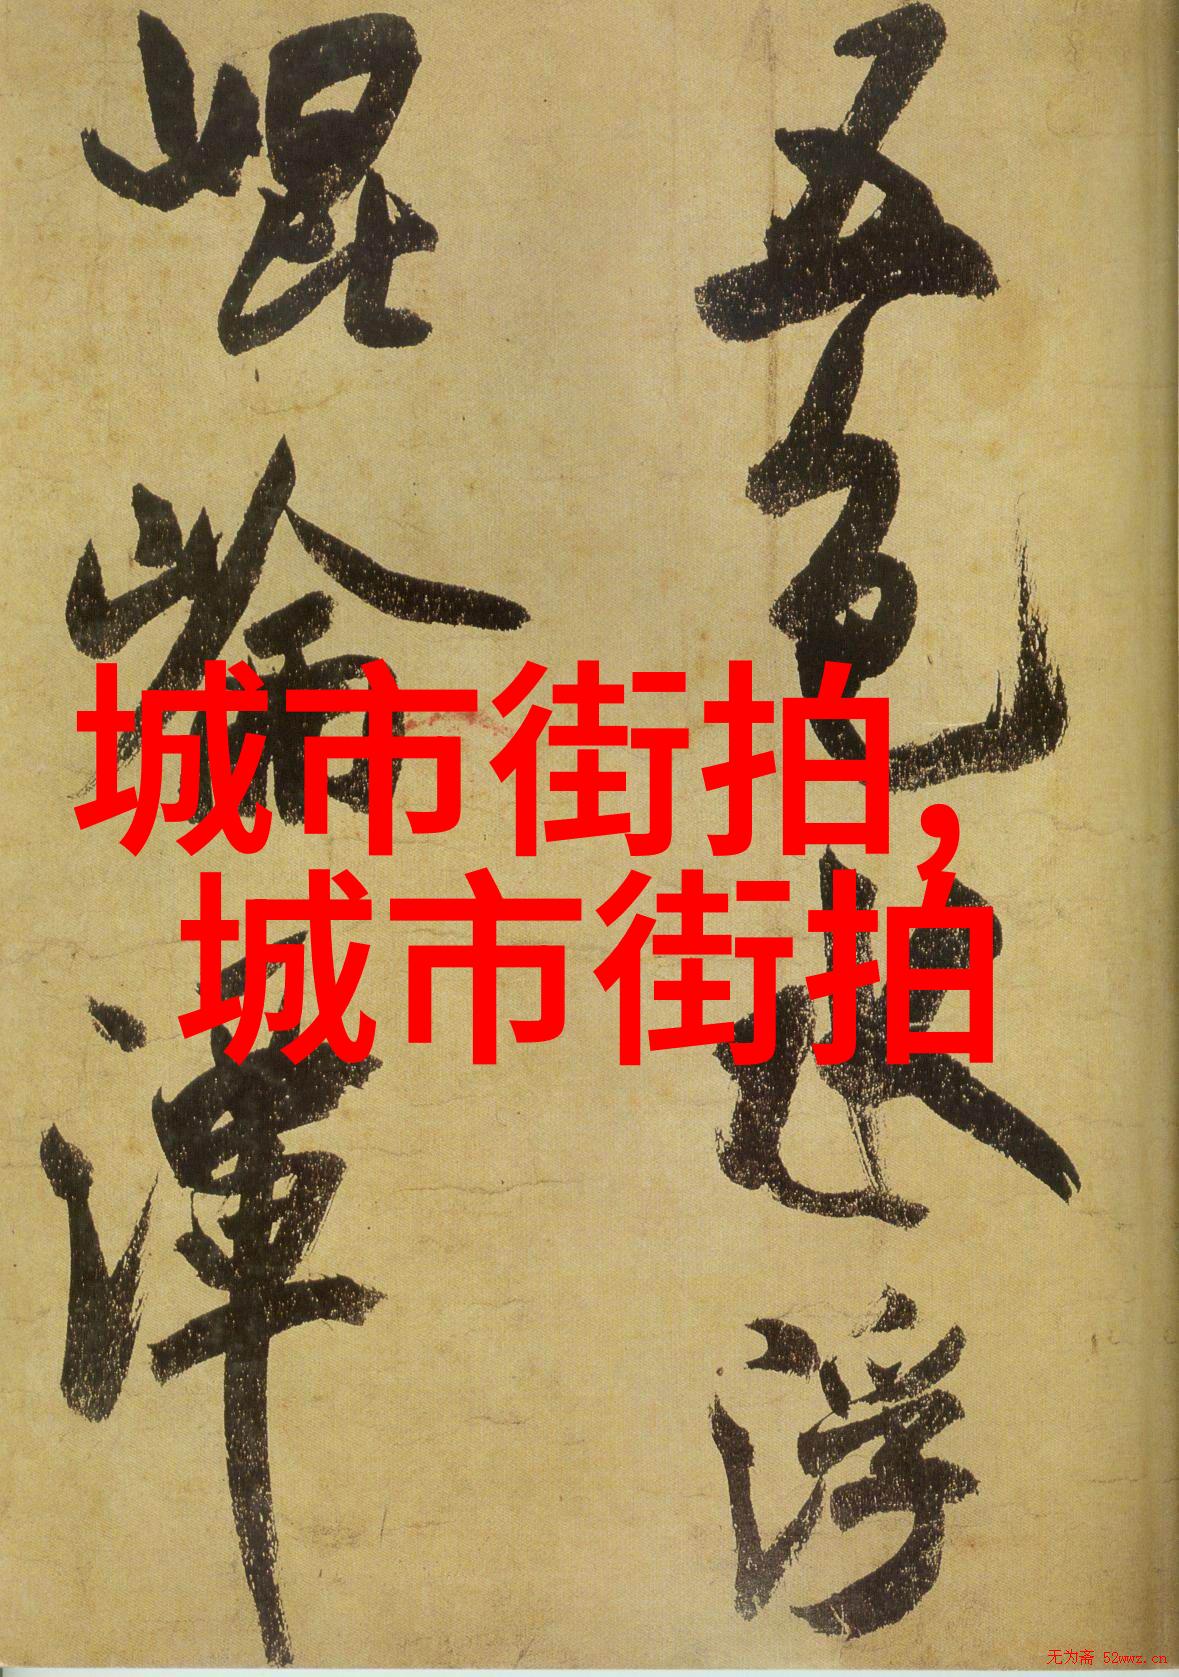 五色水浮
崐崘潭
城市街拍,
城市街拍
无为斋 52wwz.cn